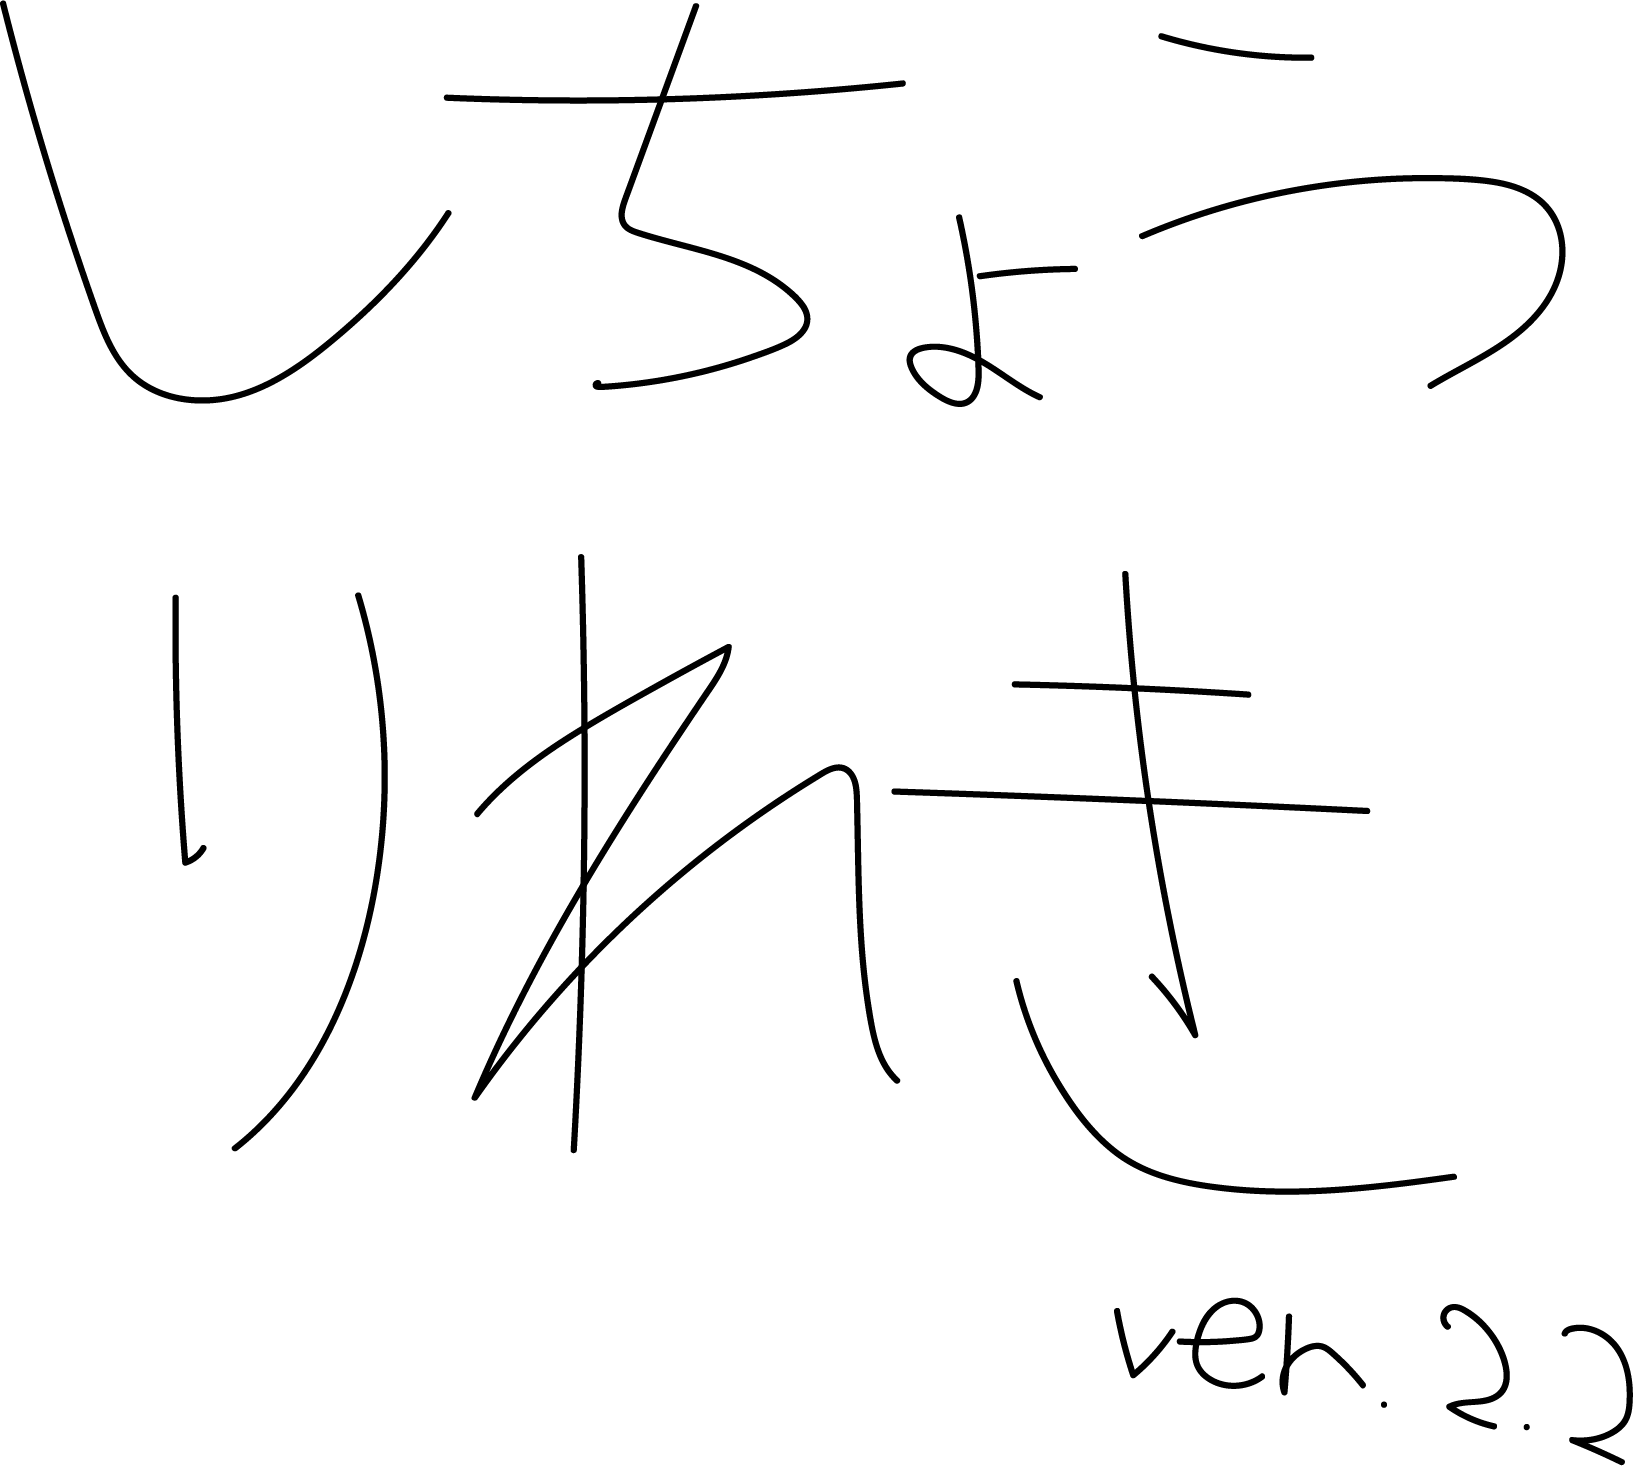 しちょう
りれき
ver.2.2